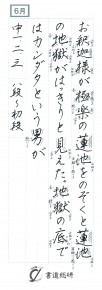 6月
お釈迦様が極楽の蓮池をのぞくと蓮池
の地獄がはっきりと見えた。地獄の底で
はカンダタという男が
中一二三 八段〜初段
書道総研